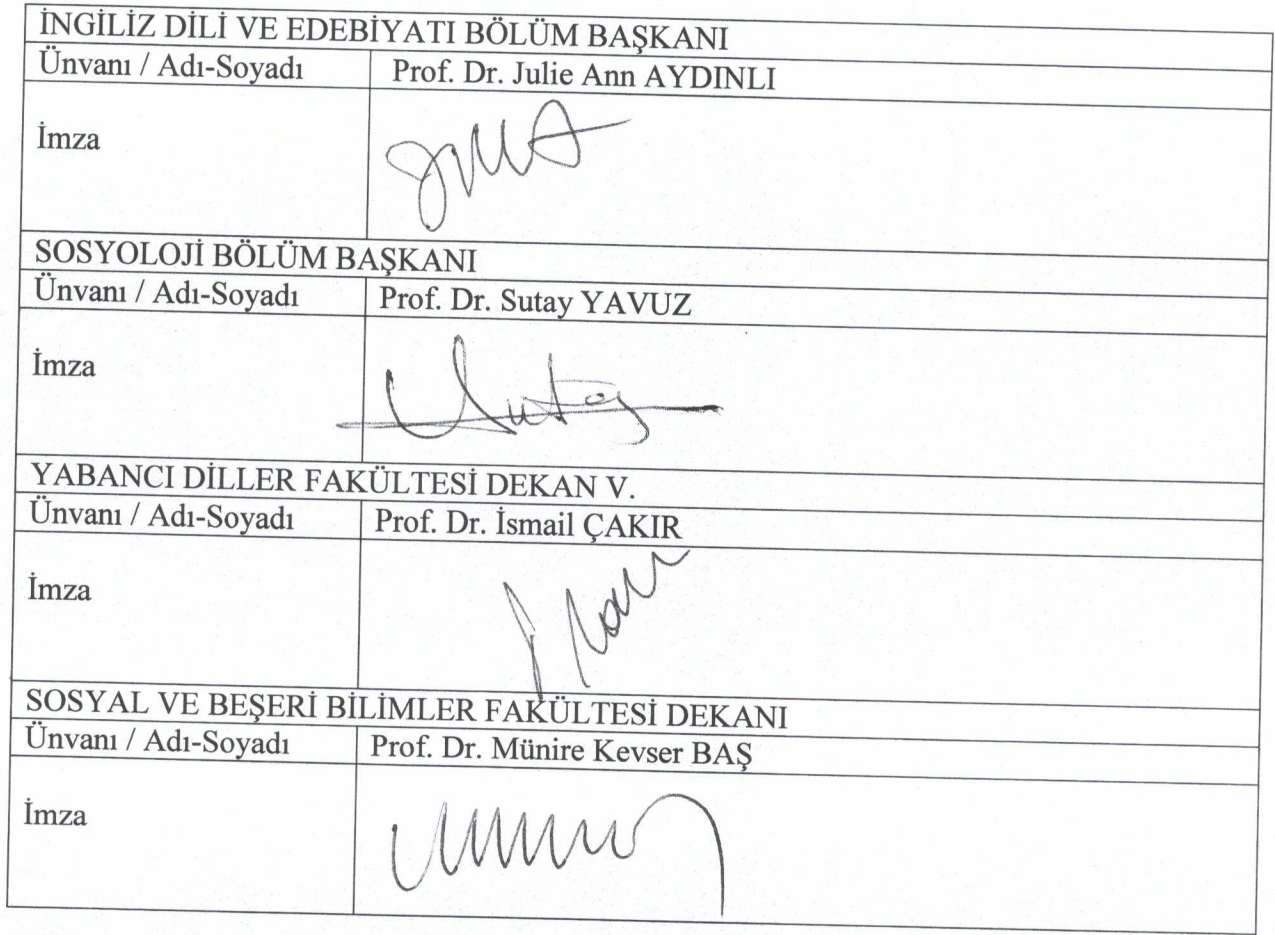 İNGİLİZ DİLİ VE EDEBİYATI BÖLÜM BAŞKANI
Ünvanı / Adı-Soyadı Prof. Dr. Julie Ann AYDINLI
İmza
SOSYOLOJİ BÖLÜM BAŞKANI
Ünvanı / Adı-Soyadı Prof. Dr. Sutay YAVUZ
İmza
YABANCI DİLLER FAKÜLTESİ DEKAN V.
Ünvanı / Adı-Soyadı Prof. Dr. İsmail ÇAKIR
İmza
SOSYAL VE BEŞERİ BİLİMLER FAKÜLTESİ DEKANI
Ünvanı / Adı-Soyadı Prof. Dr. Münire Kevser BAŞ
İmza